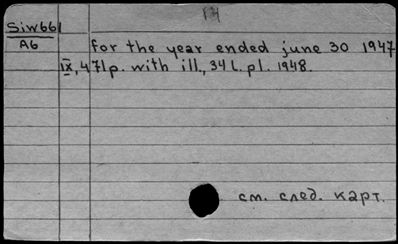 14
Siw661
A6
for the year ended june 30 1947
IX, 471p. with ill., 34 l. pl. 1948.
см. след. карт.